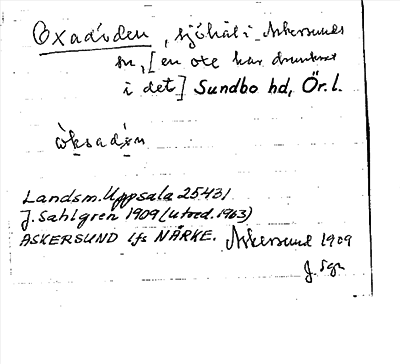 Oxadöden, sjöhål i Askersunds
sn, [en oxe har drunknat
i det] Sundbo hd, Ör. l.
Landsm. Uppsala 25431
J. Sahlgren 1909 (utred. 1963)
ASKERSUND lfs NÄRKE. Askersund 1909
J. Sgn